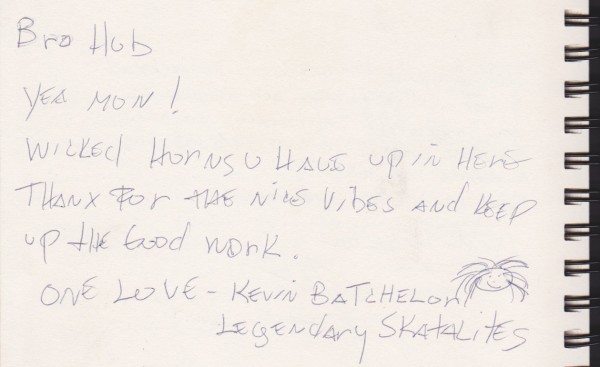 Bro Hub
Yea mon!
Wicked Horns U Have up in Here
Thanx for the nice vibes and keep
up the good work.
One Love - Kevin Batchelor
Legendary Skatalites